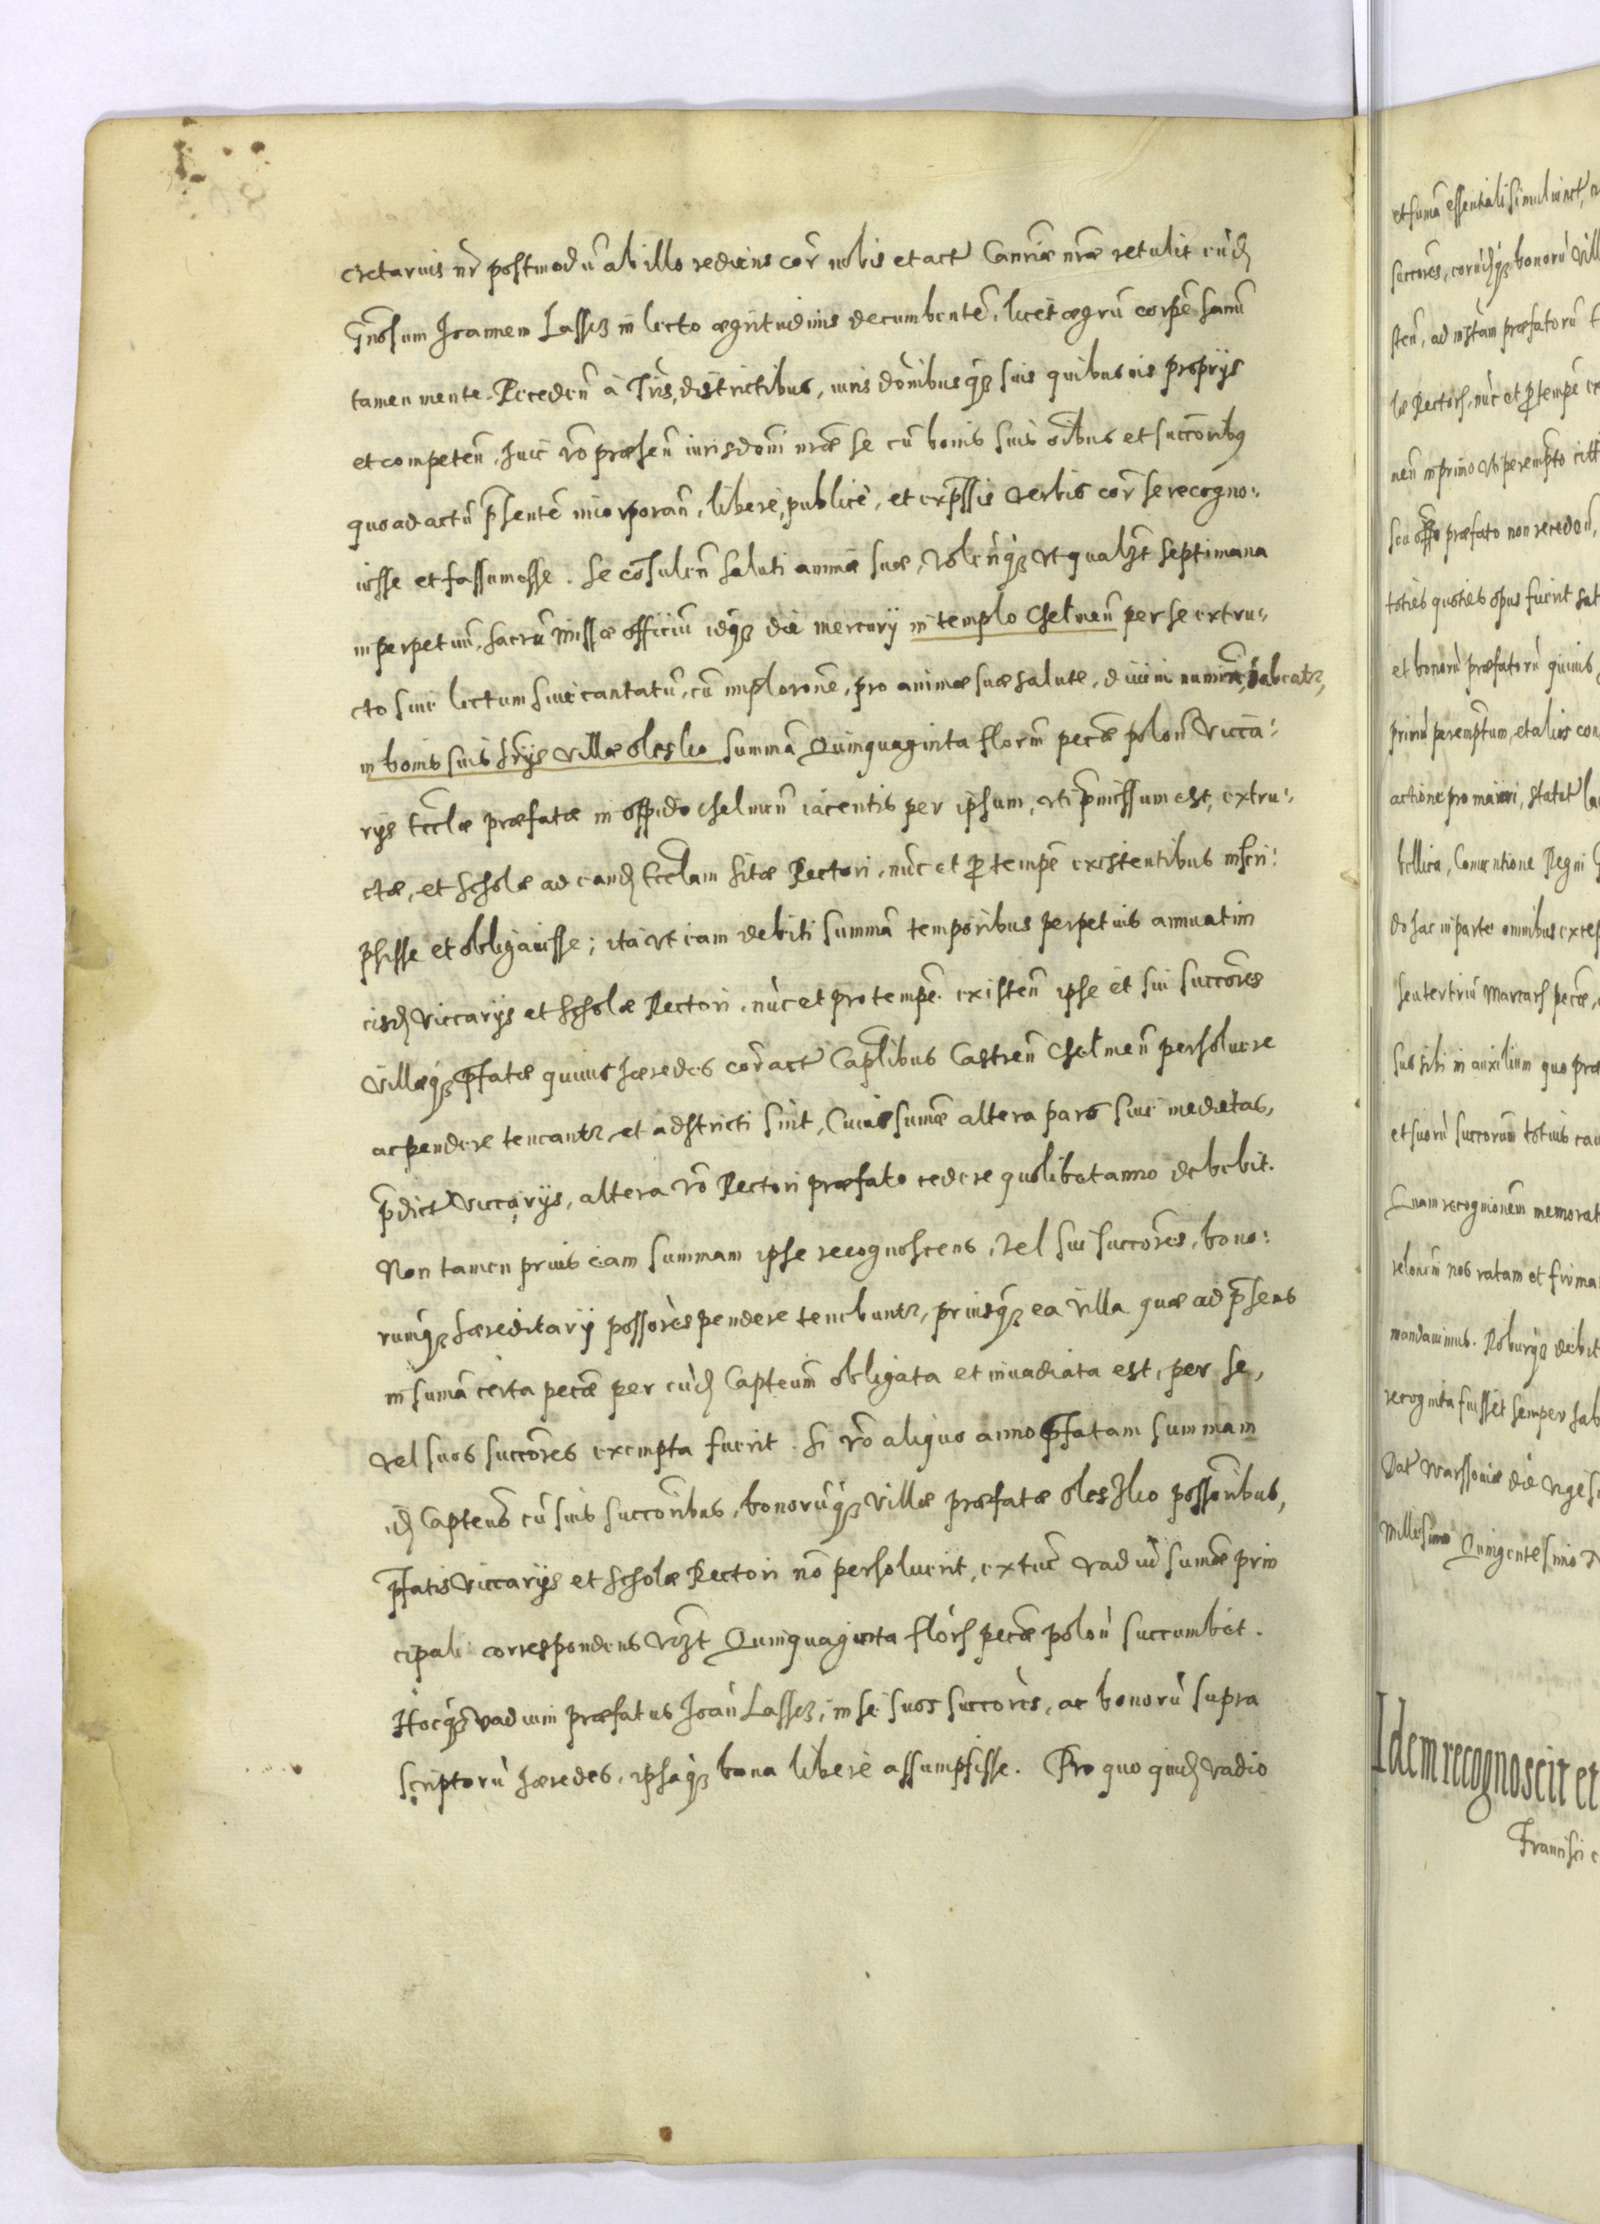 cretarius nr̄ postmodū ab illo rediens cor̄ nobis et act̄ Canriæ nræ retulit eūd̄
Gnōsum Joannem Lassez̄ in lecto ægritudinis decumbentē, licet ægrū corpē sanū
tamen mente. Receden̄ à Tr̄is, districtibus, iuris dōnibusq̨ suis quibusvis proprijs
et competen̄, huic vō præsen̄ iurisdōni nræ se cū bonis suis oībus et succōribq
quo ad actū p̄sentē incorporan̄, libere, publicè, et exp̄ssis verbis cor̄ se recogno:
uisse et fassum esse. Se cōsulen̄ saluti animæ suæ, volen̄q̨ vt qualꝫt septimana
in perpetuū, sacrū missæ officiū idq̨ die mercurij in templo Chelmen̄ per se extru:
cto siue lectum siue cantatū, cū implorōne, pro animæ suæ salute, diuini numīs, habeatꝛ,
in bonis suis hr̄ijs villæ olesko summā Quinquaginta florn̄ pecæ polon̄ Vicca:
rijs Eccłæ præfatæ in oppido Chelmen̄ iacentis per ipsum, vti p̄missum est, extru:
ctæ, et scholæ ad eand̄ Eccłam sitæ Rectori, nūc et p̱ tempē existentibus inscri:
psisse et obligauisse; ità vt eam debiti summā temporibus perpetuis annuatim
eisd̄ viccarijs et scholæ Rectori, nūc et pro tempē existen̄ ipse et sui succōres
villæq̨ p̄fatæ quiuis hæredes cor̄ act̄ Capłibus Castren̄ Chelmen̄ persoluere
ac pendere teneantꝛ, et adstricti sint, Cuius sumæ altera pars siue medietas,
p̄dict̄ viccarijs, altera vō Rectori præfato cedere quolibet anno debebit.
Non tamen prius eam summam ipse recognoscens, vel sui succōres, bono:
rumq̨ hæreditarij possōres pendere tenebuntꝛ, priusq̨ ea villa quæ ad p̄sens
in sumā certa pecæ per eūd̄ Capteum̄ obligata et inuadiata est, per se,
vel suos succōres exempta fuerit. Si vō aliquo anno p̄fatam summam
id̄ Capteus̄ cū suis succōribus, bonorūq̨ villæ præfatæ olesko possōribus,
p̄fatis viccarijs et scholæ Rectori nō persoluerit, extūc vadiū sumæ prin
cipali correspondens vꝫt Quinquaginta florꝭ pecæ polon̄ succumbet.
Hocq̨ vadium præfatus Joan̄ Lassez̄, in se suos succōres, ac bonorū supra
scriptorū hæredes, ipsaq̨ bona liberè assumpsisse. Pro quo quid̄ vadio
et sumā essentiali simul iunct̄,
succōres, eorūd̄q̨ bonorū vill
sten̄, ad instām præfatorū
læ Rectorꝭ, nūc et p̱ tempē
nen̄ in primo vti perempto citt
seu offo præfato non receden̄,
toties quoties opus fuerit sat
et bonorū præfatorū quiuis
primū peremptum, et alios con
actione pro maiori, statet̄
bellica, Conuentione Regni
do hac in parte omnibus excep
seu tertriū Marcarꝭ pecæ,
suo sibi in auxilium quo præ
et suorū succorum totius cau
Quam recognionem memorat
relonem nos ratam et firma
mandauimus. Roburq̨ debit
recognita fuisset semper hab
Dat̄ Warssouiæ die vigesi
Millesimo Quingentesimo
Idem recognoscit et
Francisci